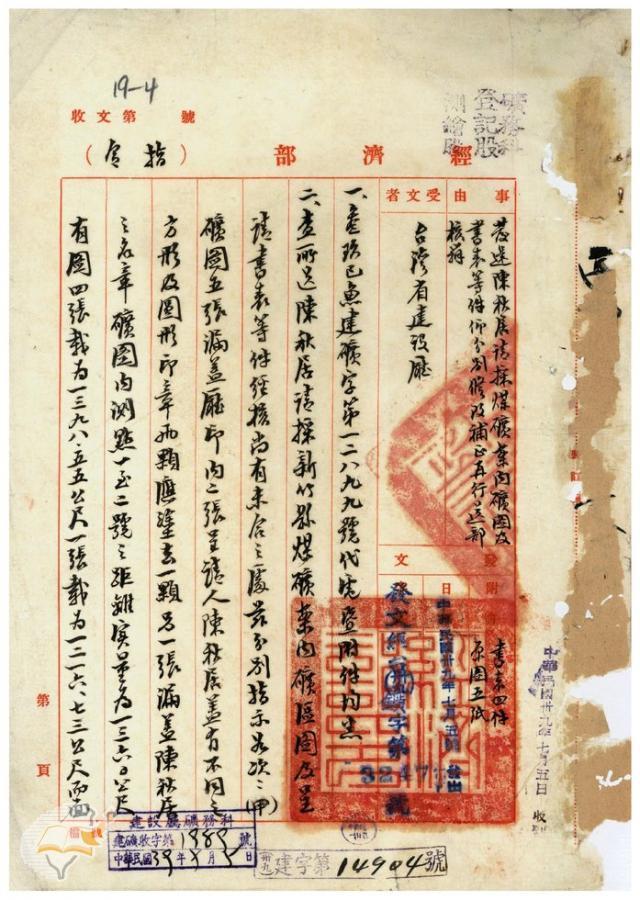 19-4
收文第 號
礦務科
登記股
測繪股
經濟部（指令）
事由
發還陳秋居請採煤礦案內礦圖及
書表等件仰分別修改補正再行送部
核辦
受文者
台灣省建設廳
附
書表四件
原圖五紙
發文
日
中華民國卅九年七月五日發出
字第 號
中華民國卅九年七月五日收
一、叁玖巳魚建礦字第一二八九九號代電暨附件均悉
二、查所送陳秋居請採新竹縣煤礦案內礦區圖及呈
請書表等件經核尚有未合之處茲分別指示如次：（甲）
礦圖五張漏蓋廳印內二張呈請人陳秋居蓋有不同之
方形及圓形印章兩顆應塗去一顆另一張漏蓋陳秋居
之名章礦圖內測點一至二號之距離實量為一三六〇公尺
有圖四張載為一三九八·五五公尺一張載為一二一六·七三公尺
第 頁
建設廳礦務科
建礦收字第1989號
中華民國39年 月 日
卅九建字第14904號